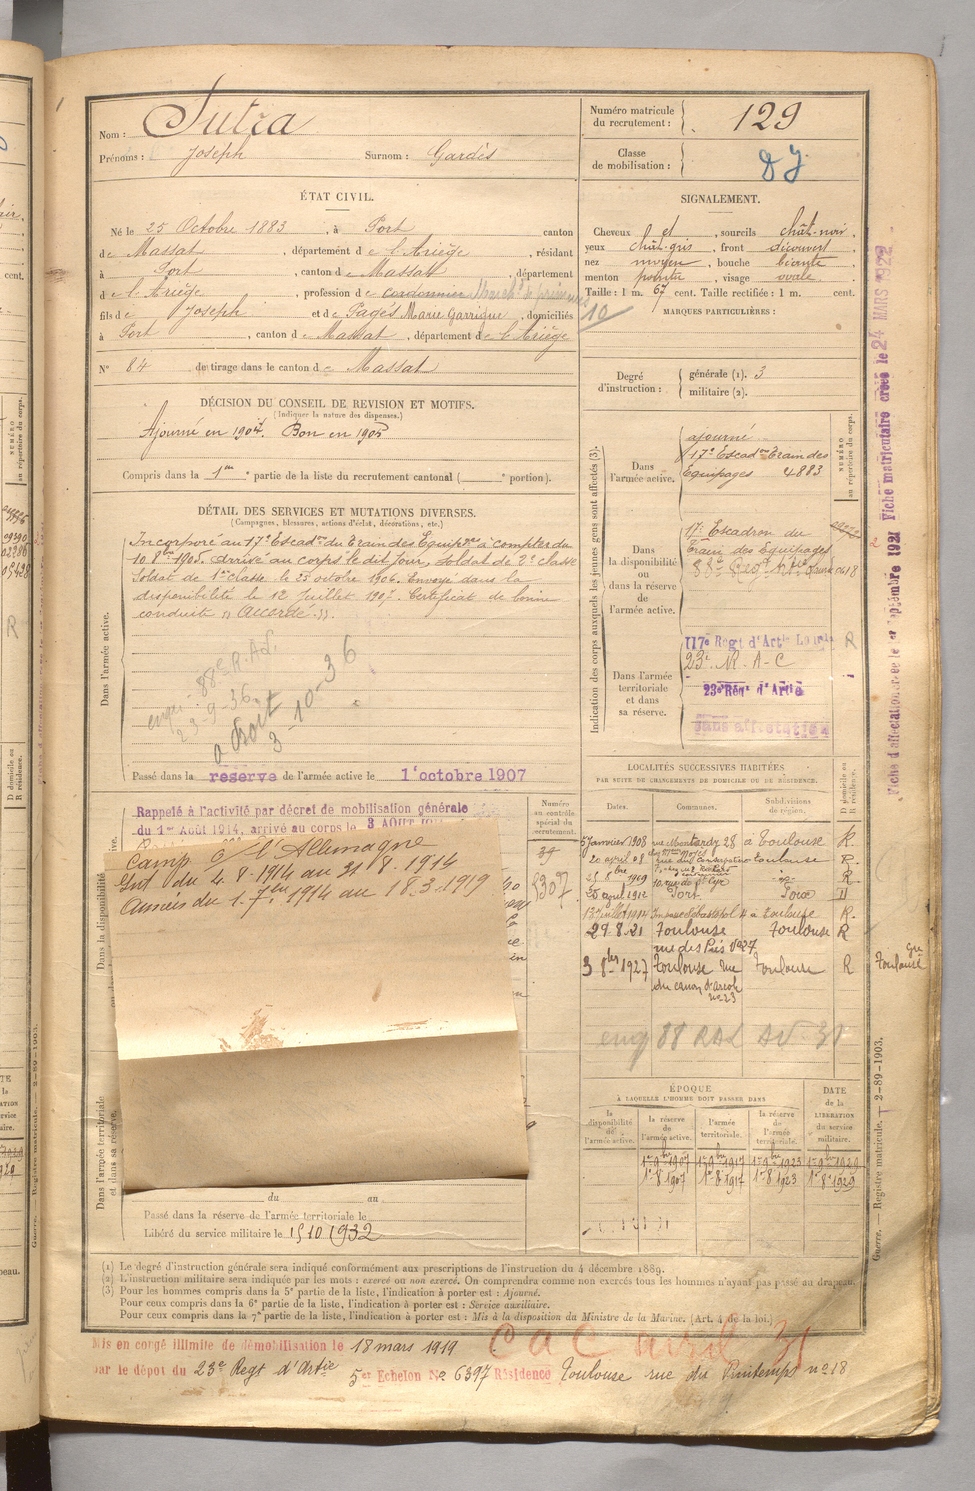 Nom : Sutra
Prénoms : Joseph Surnom : Gardès
Numéro matricule du recrutement : 129
Classe de mobilisation :
ÉTAT CIVIL.
Né le 25 Octobre 1883, à Port canton
de Massat, département de l'Ariège, résidant
à Port, canton de Massat, département
de l'Ariège, profession de cordonnier
fils de Joseph et de Pagés Marie Garrigue, domiciliés
à Port, canton de Massat, département de l'Ariège
N° 84 de tirage dans le canton de Massat
SIGNALEMENT.
Cheveux et, sourcils chât-noir,
yeux chât-gris, front découvert,
nez moyen, bouche béante,
menton pointu, visage ovale.
Taille : 1 m. 67 cent. Taille rectifiée : 1 m. cent.
10
MARQUES PARTICULIÈRES :
Degré d'instruction : générale (1). 3
militaire (2).
DÉCISION DU CONSEIL DE REVISION ET MOTIFS.
(Indiquer la nature des dispenses.)
Ajourné en 1904. Bon en 1905
Compris dans la 1re partie de la liste du recrutement cantonal ( portion).
DÉTAIL DES SERVICES ET MUTATIONS DIVERSES.
(Campagnes, blessures, actions d'éclat, décorations, etc.)
Dans l'armée active.
Incorporé au 17e Escad.on du Train des Equip.ges à compter du
10 8bre 1905. arrivé au corps le dit jour, soldat de 2e classe
Soldat de 1re classe le 25 octobre 1906. Envoyé dans la
disponibilité le 12 Juillet 1907. Certificat de bonne
conduite "Accordé".
88e R.A.L.
2-9-36
a droit
3-10-36
Passé dans la réserve de l'armée active le 1 octobre 1907
Indication des corps auxquels les jeunes gens sont affectés (3).
NUMÉRO au répertoire du corps.
Dans l'armée active.
ajourné
17e Escad.on Train des
Equipages 4883
Dans la disponibilité ou dans la réserve de l'armée active.
17e Escadron du
Train des Equipages
Dans l'armée territoriale et dans sa réserve.
117e Regt d'Artie Lourde R
23e R. A. C
23e Régt d'Artie
Sans affectation
Fiche d'affectation créée le 1er Septembre 1921 Fiche matriculaire créée le 24 MARS 1922
Rappelé à l'activité par décret de mobilisation générale
du 1er Août 1914, arrivé au corps le 3 AOUT 1914
Camp. c/ l'Allemagne
Int du 4.8.1914 au 31.8.1914
Armées du 1.7bre 1914 au 18.3.1919
Numéro au contrôle spécial du recrutement.
LOCALITÉS SUCCESSIVES HABITÉES
PAR SUITE DE CHANGEMENTS DE DOMICILE OU DE RÉSIDENCE.
Dates. Communes. Subdivisions de région. D domicile ou R résidence.
5 Janvier 1908 rue Montardy 28 à Toulouse R.
20 avril 08 Toulouse R.
10 rue de St Cyr R
20 avril 1912 Port Foix D
13 juillet 1914 Impasse Sébastopol 4 à Toulouse R.
29.8.21 Toulouse Toulouse R
rue des Prés N°27
3 8bre 1927 Toulouse rue Toulouse R
du canon d'arcole
n° 23
Toulouse
eng 88 RAL AV. 31
ÉPOQUE
À LAQUELLE L'HOMME DOIT PASSER DANS
DATE de la LIBÉRATION du service militaire.
la disponibilité de l'armée active. la réserve de l'armée active. l'armée territoriale. la réserve de l'armée territoriale.
1er 9bre 1907 1er 9bre 1917 1er 9bre 1923 1er 9bre 1929
1er 8 1907 1er 8 1917 1er 8 1923 1er 8 1929
Dans l'armée territoriale et dans sa réserve.
du au
Passé dans la réserve de l'armée territoriale le
Libéré du service militaire le 15 10 1932
(1) Le degré d'instruction générale sera indiqué conformément aux prescriptions de l'instruction du 4 décembre 1889.
(2) L'instruction militaire sera indiquée par les mots : exercé ou non exercé. On comprendra comme non exercés tous les hommes n'ayant pas passé au drapeau.
(3) Pour les hommes compris dans la 5e partie de la liste, l'indication à porter est : Ajourné.
Pour ceux compris dans la 6e partie de la liste, l'indication à porter est : Service auxiliaire.
Pour ceux compris dans la 7e partie de la liste, l'indication à porter est : Mis à la disposition du Ministre de la Marine. (Art. 4 de la loi.)
Guerre. — Registre matricule. — 2-89-1903.
Mis en congé illimité de démobilisation le 18 mars 1919
CaC avril 31
par le dépôt du 23e Regt d'Artie 5er Echelon No 6397 Résidence Toulouse rue du Printemps n° 18